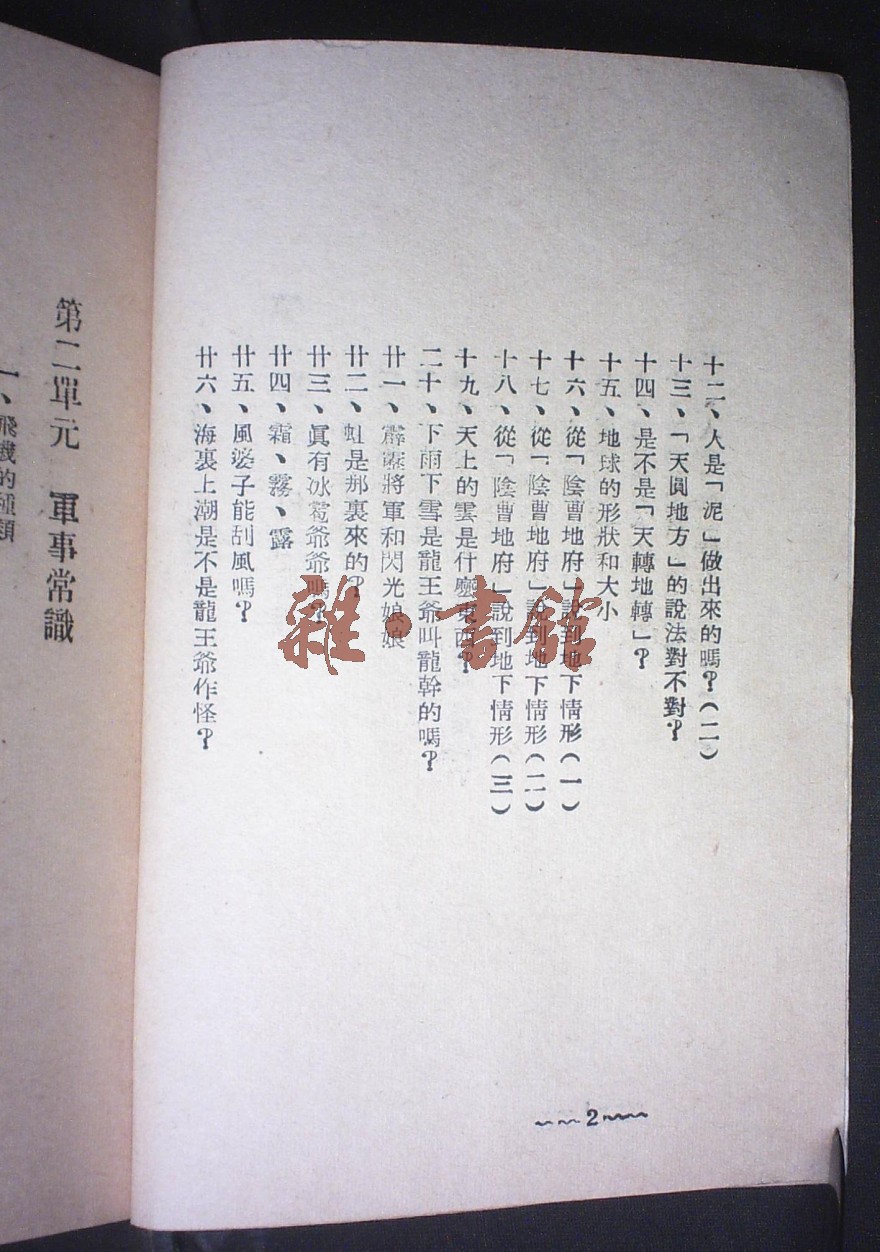 十二、人是「泥」做出來的嗎？(二)
十三、「天圓地方」的說法對不對？
十四、是不是「天轉地轉」？
十五、地球的形狀和大小
十六、從「陰曹地府」說到地下情形(一)
十七、從「陰曹地府」說到地下情形(二)
十八、從「陰曹地府」說到地下情形(三)
十九、天上的雲是什麼東西？
二十、下雨下雪是龍王爺叫龍幹的嗎？
廿一、霹靂將軍和閃光娘娘
廿二、虹是那裏來的？
廿三、眞有冰雹爺爺嗎？
廿四、霜、霧、露
廿五、風婆子能刮風嗎？
廿六、海裏上潮是不是龍王爺作怪？
2
第二單元 軍事常識
一、飛機的種類
雜·書館